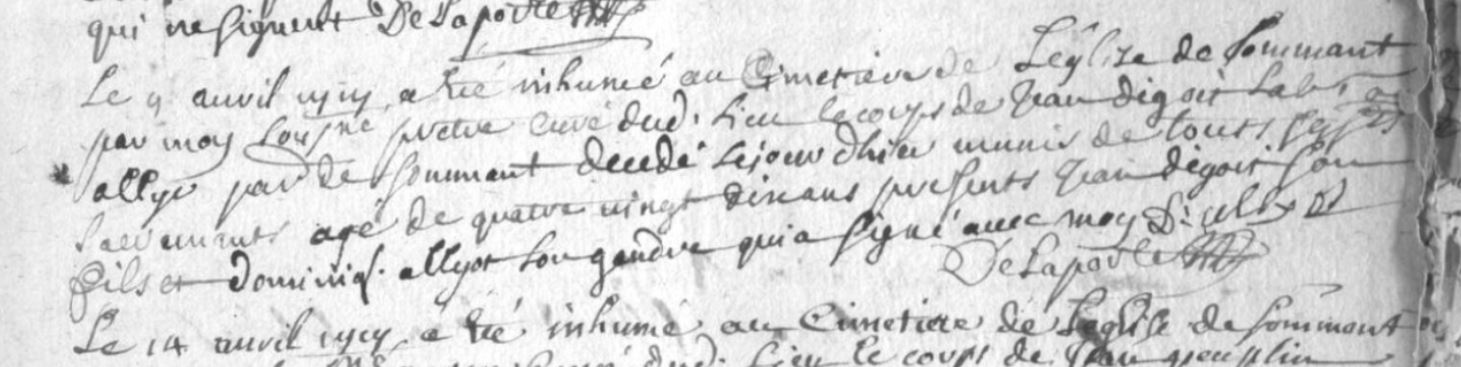 qui ne signent DeLaporte
Le 9 avril 1717 a été inhumé au Cimetiere de Leglize de sommant
par moy sousne pretre curé dud. lieu le corps de Jean digoit Labr a
allye par de sommant decedé le jour dhier munis de touts ses
Sacrements agé de quatre vingt dix ans presents Jean digoit son
fils et dominiq. allyot son gendre qui a signé avec moy
DeLaporte
Le 14 avril 1717 a été inhumé au Cimetiere de Leglise de sommant
curé dud. lieu le corps de Jean